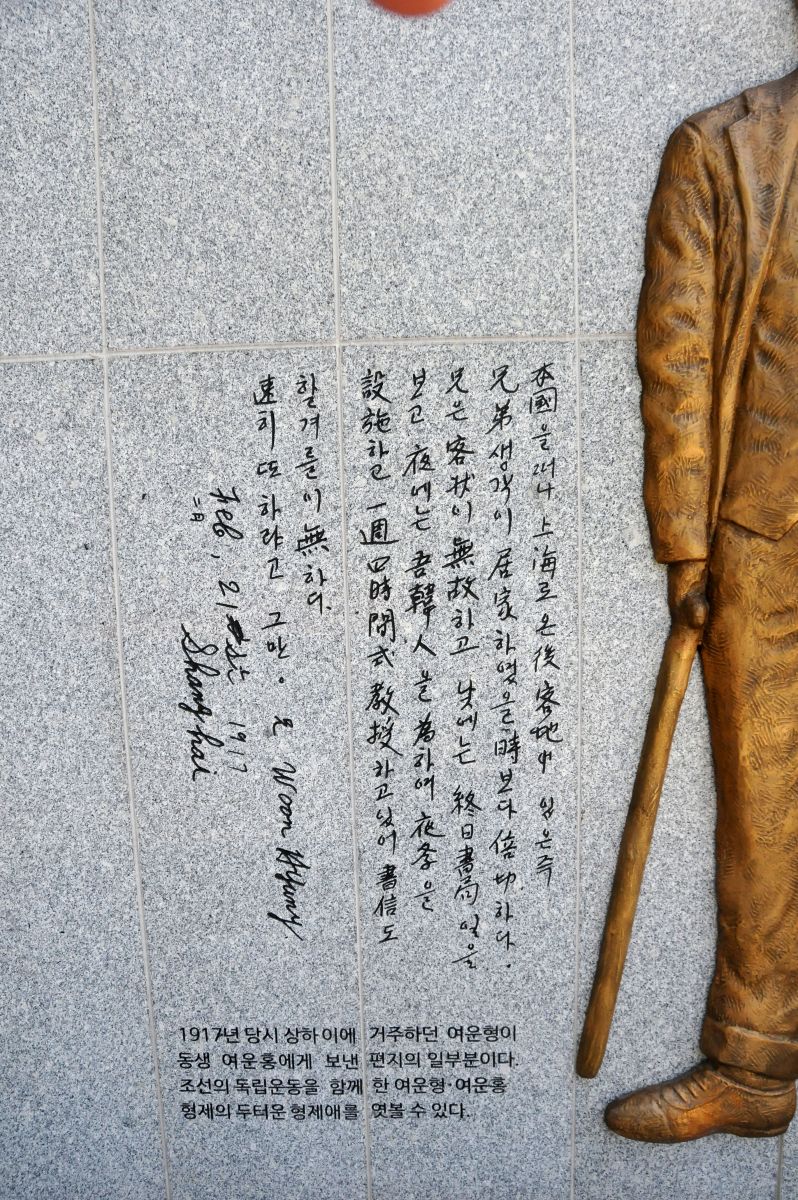 本國을 떠나 上海로 온 後 客地中 있은 즉
兄弟생각이 居家하였을 時보다 倍切하다.
兄은 客狀이 無故하고 낮에는 終日 書局 일을
보고 夜에는 吾韓人을 爲하여 夜學을
設施하고 一週 四時間式 敎授하고 있어 書信도
할 겨를이 無하다.
速히 또 하랴고 그만. 兄 Woon Hyung
Feb, 21 1917
二月
Shanghai
1917년 당시 상하이애 거주하던 여운형이
동생 여운홍에게 보낸 편지의 일부분이다.
조선의 독립운동을 함께 한 여운형·여운홍
형제의 두터운 형제애를 엿볼 수 있다.